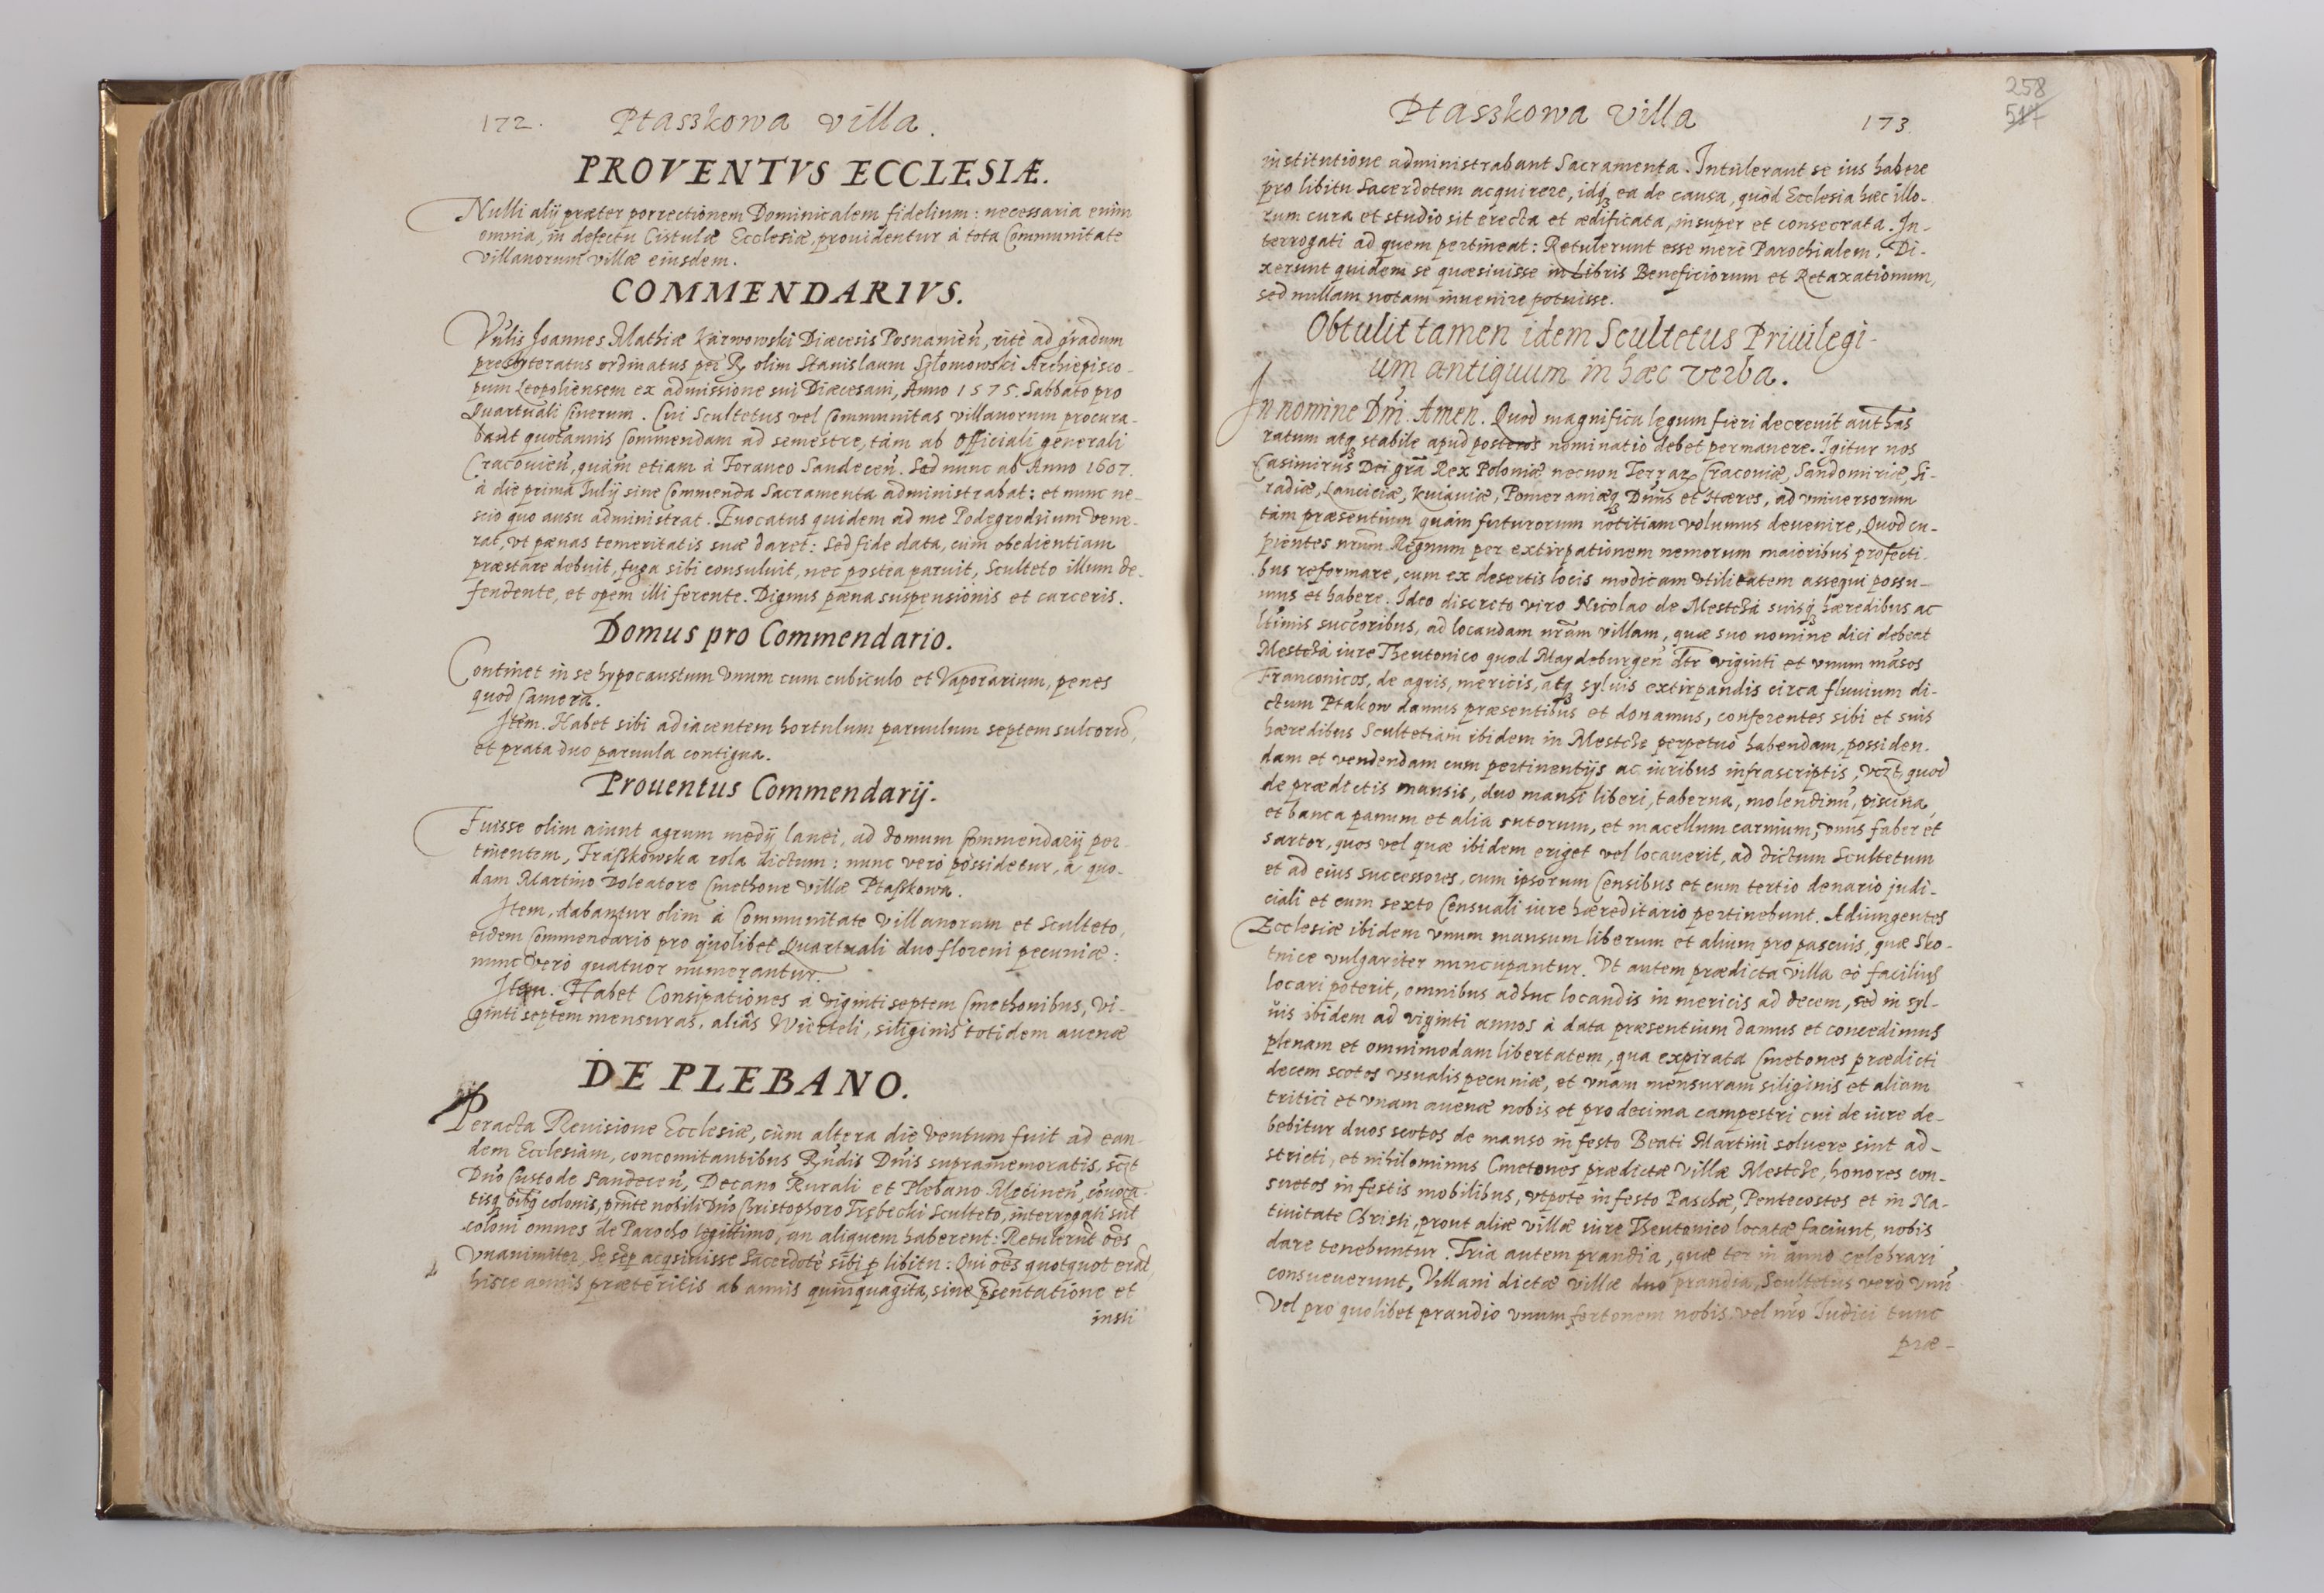 172. Ptaszkowa villa.
PROVENTVS ECCLESIÆ.
Nulli alij præter porrectionem Dominicalem fidelium: necessaria enim
omnia, in defectu Cistulæ Ecclesiæ, prouidentur à tota Communitate
villanorum villæ eiusdem.
COMMENDARIVS.
Vńlis Joannes Mathiæ Karwowski Diæcesis Posnanień, ritè ad gradum
presbyteratus ordinatus per R. olim Stanislaum Szlomowski Archiepisco-
pum Leopoliensem ex admissione sui Diæcesani, Anno 1575. Sabbato pro
Quartuali Cinerum. Cui Scultetus vel Communitas villanorum procura-
bant quotannis Commendam ad semestre, tàm ab Officiali generali
Cracouień, quàm etiam à Foraneo Sandeceń. Sed nunc ab Anno 1607.
à die prima Julij sine Commenda Sacramenta administrabat: et nunc ne-
scio quo ausu administrat. Euocatus quidem ad me Podegrodsium vene-
rat, vt pænas temeritatis suæ daret: Sed fide data, cùm obedientiam
præstare debuit, fuga sibi consuluit, nec postea paruit, Sculteto illum de-
fendente, et opem illi ferente. Dignus pæna suspensionis et carceris.
Domus pro Commendario.
Continet in se hypocaustum vnum cum cubiculo et Vaporarium, penes
quod Camera.
Item. Habet sibi adiacentem hortulum paruulum septem sulcorū,
et prata duo paruula contigua.
Prouentus Commendarij.
Fuisse olim aiunt agrum medij lanei, ad domum Commendarij per-
tinentem, Fraßkowska rola dictum: nunc verò possidetur, à quo-
dam Martino Doleatore Cmethone villæ Ptaßkowa.
Item, dabantur olim à Communitate villanorum et Sculteto,
eidem Commendario pro quolibet Quartuali duo floreni pecuniæ:
nunc verò quatuor numerantur.
Item. Habet Consipationes à viginti septem Cmethonibus, vi-
ginti septem mensuras, aliâs Wierteli, siliginis totidem auenæ
DE PLEBANO.
Peracta Reuisione Ecclesiæ, cùm altera die ventum fuit ad ean-
dem Ecclesiam, concomitantibus Rńdis Dńis supramemoratis, sczt
Dńo Custode Sandeceń, Decano Rurali et Plebano Mecineń, cōuoca-
tisq oībq colonis, pnte nobili Dńo Christophoro Trębecki Sculteto, interrogati sūt
coloni omnes de Parocho legitimo, an aliquem haberent: Retulerūt oēs
vnanimiter, se sēp acqsiuisse Sacerdotē sibi p libitu: Qui oēs quotquot erāt,
hisce annis præteritis ab annis quinquaginta, sine pṣentatione et
insti
Ptaszkowa Villa 173.
258
517
institutione administrabant Sacramenta. Intulerant se ius habere
pro libitu Sacerdotem acquirere, idq ea de causa, quòd Ecclesia hæc illo-
rum cura et studio sit erecta et ædificata, insuper et consecrata. In-
terrogati ad quem pertineat: Retulerunt esse merè Parochialem. Di-
xerunt quidem se quæsiuisse in Libris Beneficiorum et Retaxationum,
sed nullam notam inuenire potuisse.
Obtulit tamen idem Scultetus Priuilegi-
um antiquum in hæc verba.
In nomine Dńi. Amen. Quod magnifica legum fieri decreuit authās
ratum atq stabile apud posteros nominatio debet permanere. Igitur nos
Casimirus Dei grā Rex Poloniæ necnon Terrar Cracouiæ, Sandomiriæ, Si-
radiæ, Lanciciæ, Kuiauiæ, Pomeraniæq Dńus et Hæres, ad vniuersorum
tàm præsentium quàm futurorum notitiam volumus deuenire, Quod cu-
pientes nrum Regnum per extirpationem nemorum maioribus profecti-
bus reformare, cum ex desertis locis modicam vtilitatem assequi possu-
mus et habere. Ideo discreto viro Nicolao de Mestcha suisq hæredibus ac
ltimis succoribus, ad locandam nram villam, quæ suo nomine dici debeat
Mestcha iure Theutonico quod Maydeburgeń dtr viginti et vnum māsos
Franconicos, de agris, mericis, atq syluis extirpandis circa fluuium di-
ctum Ptakow damus præsentibus et donamus, conferentes sibi et suis
hæredibus Scultetiam ibidem in Mestche perpetuò habendam, possiden-
dam et vendendam cum pertinentijs ac iuribus infrascriptis, vczt quod
de prædictis mansis, duo mansi liberi, taberna, molendinū, piscina,
et banca panum et alia sutorum, et macellum carnium, vnus faber et
sartor, quos vel quæ ibidem eriget vel locauerit, ad dictum Scultetum
et ad eius successores, cum ipsorum Censibus et cum tertio denario judi-
ciali et cum sexto Censuali iure hæreditario pertinebunt. Adiungentes
Ecclesiæ ibidem vnum mansum liberum et alium pro pascuis, quæ Sko-
tnice vulgariter nuncupantur. Vt autem prædicta villa eò facilius
locari poterit, omnibus adhuc locandis in mericis ad decem, sed in syl-
uis ibidem ad viginti annos à data præsentium damus et concedimus
plenam et omnimodam libertatem, qua expirata Cmetones prædicti
decem scotos vsualis pecuniæ, et vnam mensuram siliginis et aliam
tritici et vnam auenæ nobis et pro decima campestri cui de iure de-
bebitur duos scotos de manso in festo Beati Martini soluere sint ad-
stricti, et nihilominus Cmetones prædictæ villæ Mestche, honores con-
suetos in festis mobilibus, vtpote in festo Paschæ, Pentecostes et in Na-
tiuitate Christi, prout aliæ villæ iure Theutonico locatæ faciunt, nobis
dare tenebuntur. Tria autem prandia, quæ ter in anno celebrari
consueuerunt, Villani dictæ villæ duo prandia, Scultetus verò vnū
Vel pro quolibet prandio vnum fertonem nobis vel nro Iudici tunc
præ-